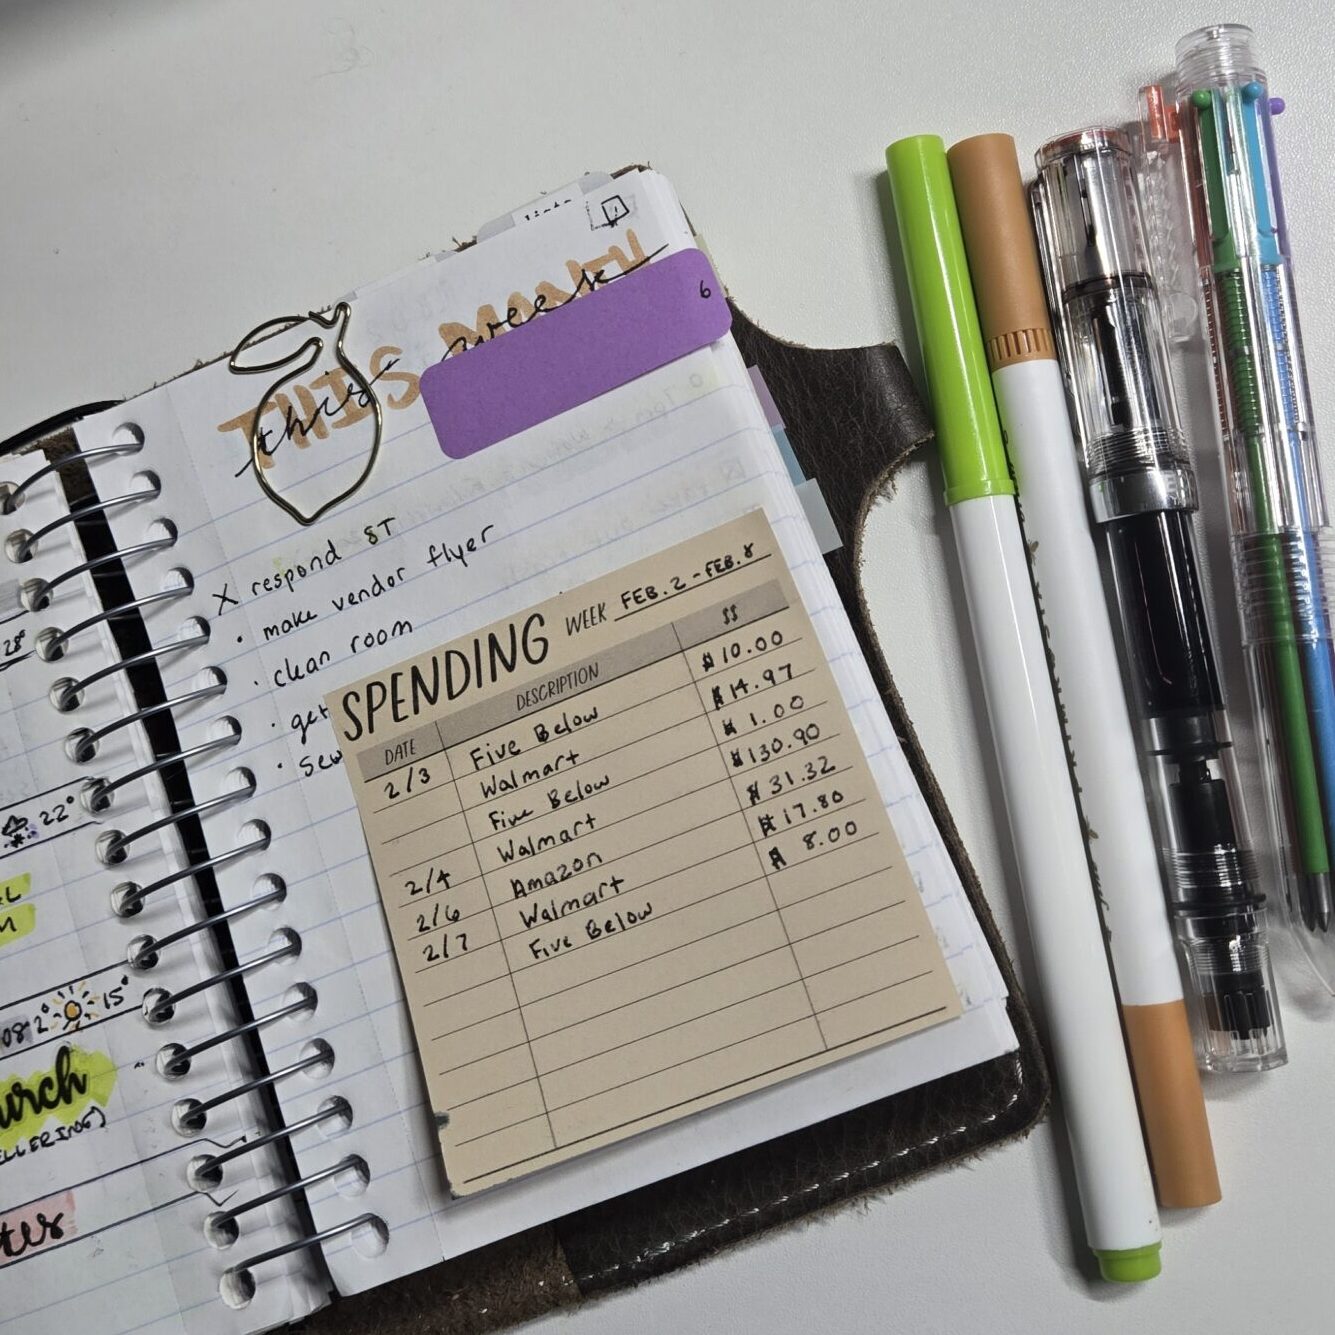 lists
THIS MONTH
this week
6
X respond ST
• make vendor flyer
• clean room
• get
• sew
SPENDING WEEK FEB. 2 - FEB. 8
DATE DESCRIPTION $$
2/3 Five Below $10.00
Walmart $14.97
Five Below $1.00
Walmart $130.90
2/4 Amazon $31.32
2/6 Walmart $17.80
2/7 Five Below $8.00
28°
22°
M
2° 15°